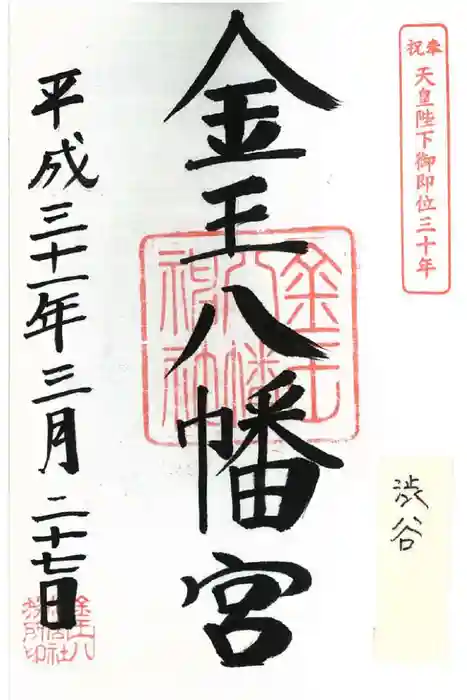 奉祝 天皇陛下御即位三十年
渋谷
金王八幡宮
金王八幡神社
平成三十一年三月二十七日